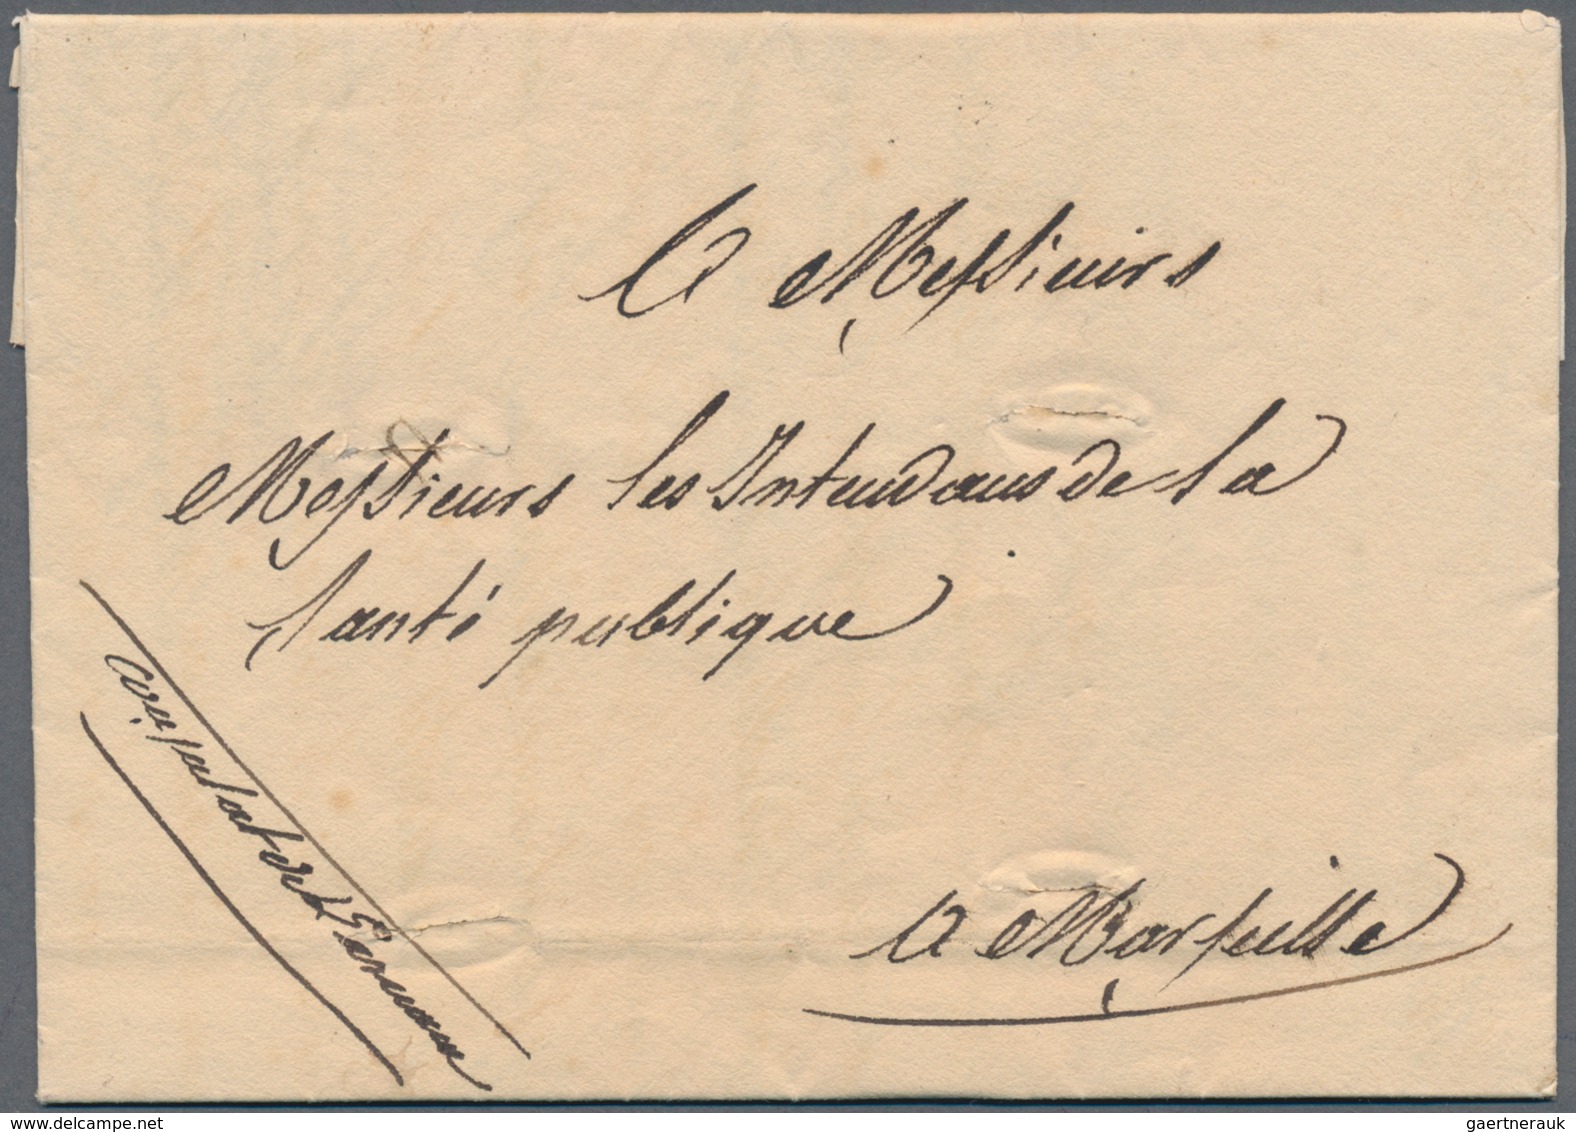 A Messieurs
Messieurs les Intendans de la
Santé publique
A Marseille
Consulat de
www.delcampe.net
gaertnerauk